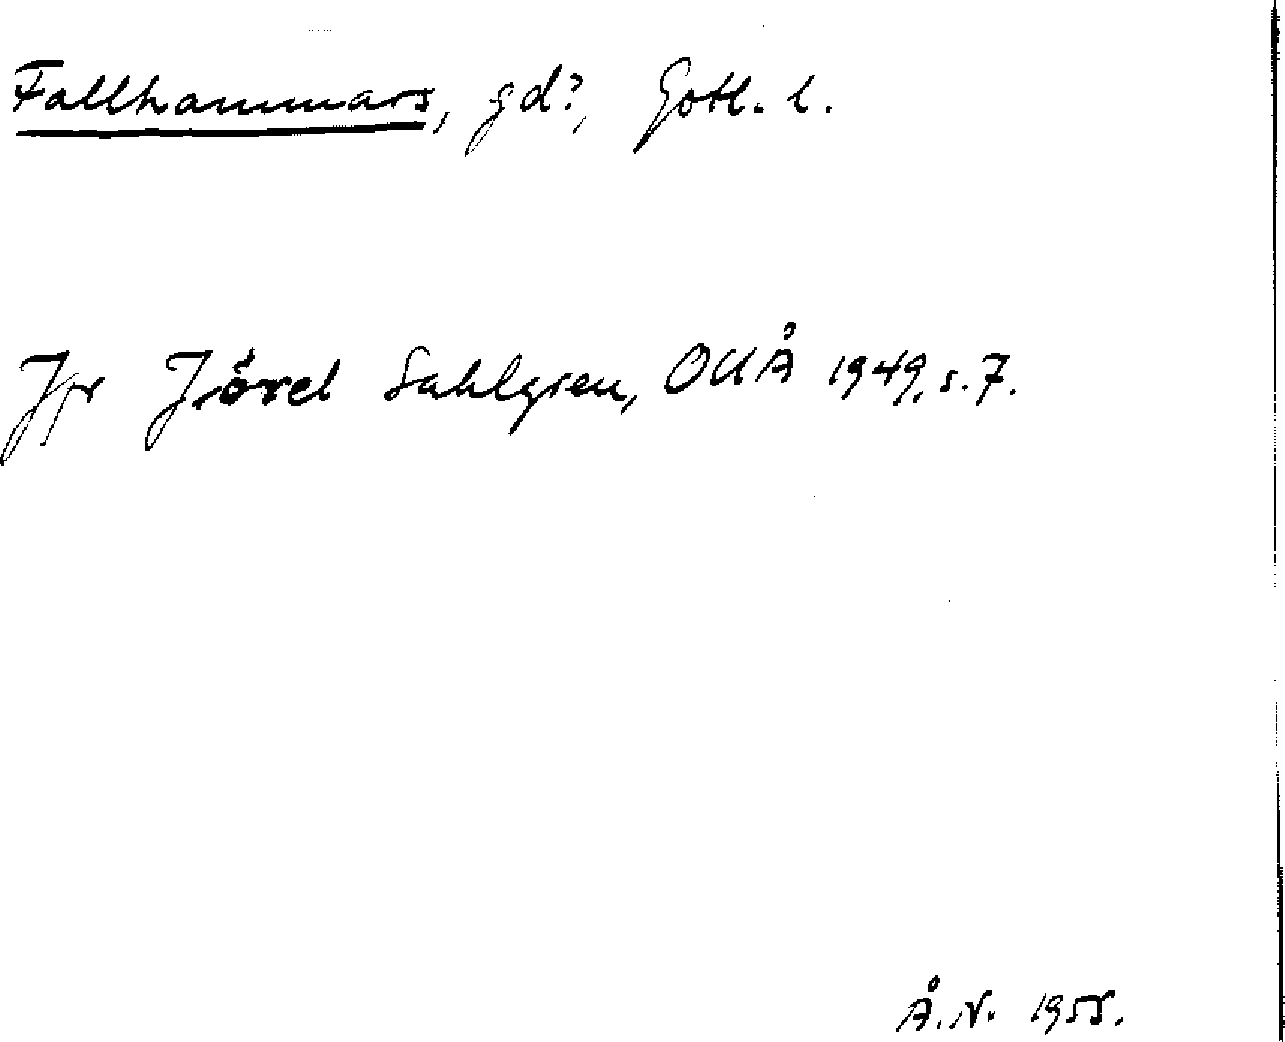 Fallhammars, gd?, Gotl. l.
Jfr Jöran Sahlgren, OUÅ 1949, s. 7.
Å. N. 1955.